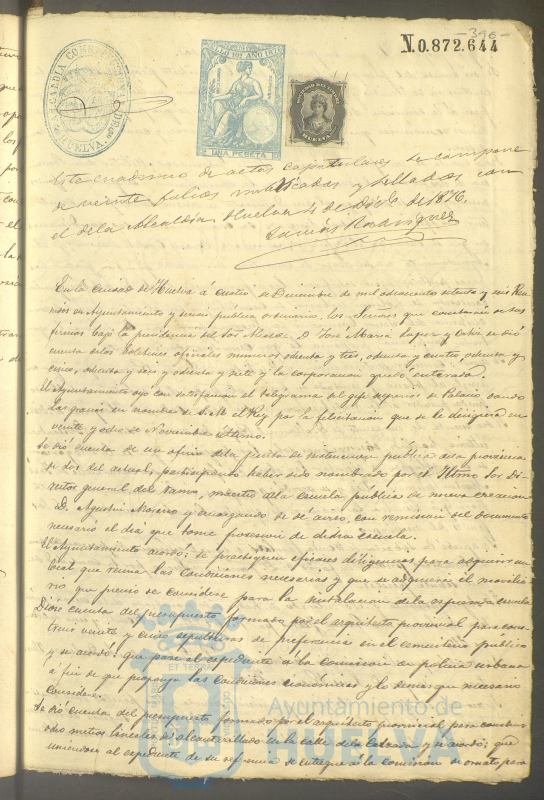 -396-
N.0.872.644
ALCALDIA CONSTITUCIONAL DE HUELVA
AÑO 1876
UNA PESETA
HUELVA
Este cuaderno de actas capitulares se compone
de veinte folios rubricados y sellados con
el de la Alcaldía. Huelva 4 de Dic.e de 1876.
Rodriguez
En la ciudad de Huelva á cuatro de Diciembre de mil ochocientos setenta y seis Reu-
nidos en Ayuntamiento y sesion pública ordinaria, los Señores que constarán de sus
firmas bajo la presidencia del Sor Alcalde D. José Maria Lopez y se dió
cuenta de los Boletines oficiales numeros ochenta y tres, ochenta y cuatro ochenta y
cinco, ochenta y seis y ochenta y siete y la corporacion quedó enterada.
El Ayuntamiento oyó con satisfaccion el telégrama del gefe superior de Palacio dando
las gracias en nombre de S. M. el Rey por la felicitacion que se le dirigiera en
veinte y ocho de Noviembre último.
Se dió cuenta de un oficio de la junta de instruccion pública de la provincia
de dos del actual, participando haber sido nombrado por el Iltmo Sor Di-
rector general del ramo, maestro de la escuela pública de nueva creacion
D. Agustin Moreno y encargando se dé aviso, con remision del documento
necesario el dia que tome posesion de dicha escuela.
El Ayuntamiento acordó: se practiquen eficaces diligencias para adquirir un
local que reuna las condiciones necesarias y que se adquiera el mobilia-
rio que preciso se considere para la instalacion de la espresada escuela
Dióse cuenta del presupuesto formado por el arquitecto provincial para cons-
truir veinte y cinco sepulturas de preferencia en el cementerio público
y se acordó: que pase el espediente á la comision de policia urbana
á fin de que proponga las condiciones económicas y lo demas que necesario
considere.
Se dió cuenta del presupuesto formado por el arquitecto provincial para construir
ocho metros lineales de alcantarillado en la calle de la Calzada y se acordó: que
uniendose al espediente de su referencia se entregue á la comision de ornato para
ET TERRAE
Ayuntamiento de
HUELVA